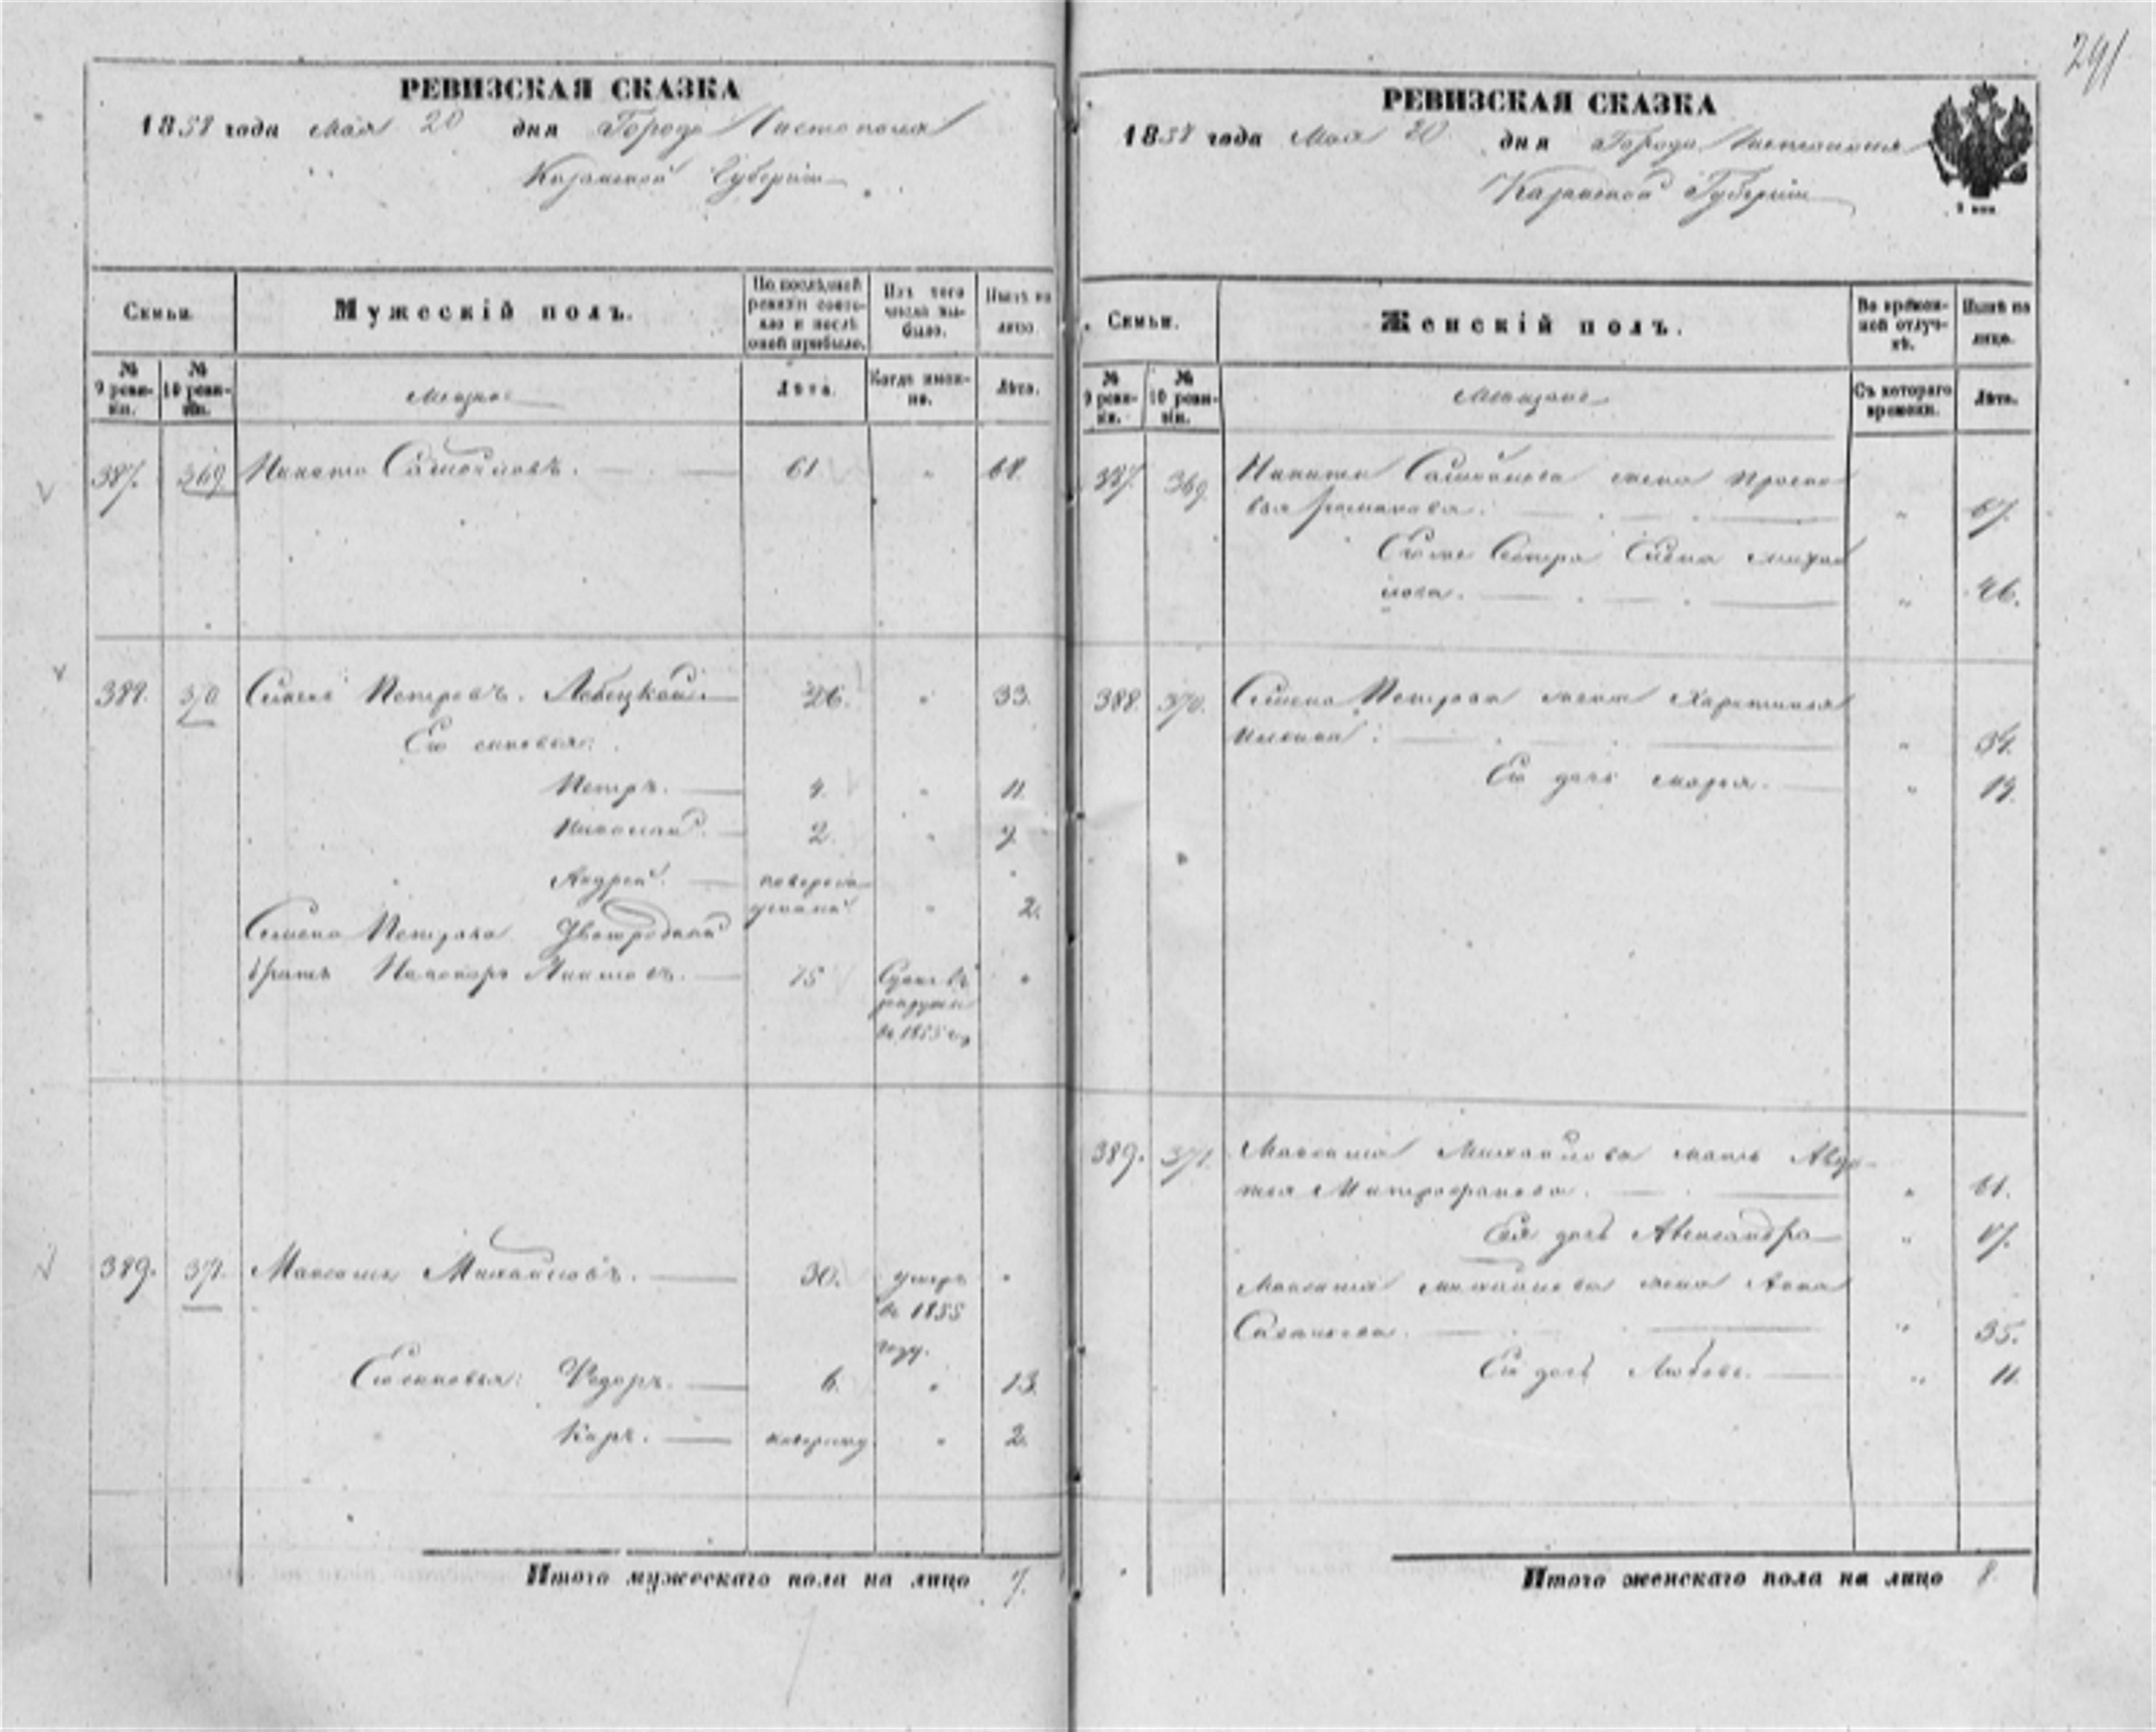 291
РЕВИЗСКАЯ СКАЗКА
1858 года Мая 20 дня Города Чистополя
Казанской Губернии
Семьи. Мужескій полъ. По послѣдней ревизіи состояло и послѣ оной прибыло. Изъ того числа выбыло. Нынѣ на лицо.
№ 9 ревизіи. № 10 ревизіи. Мещане Лѣта. Когда именно. Лѣта.
387. 369 Никита Самойловъ. 61 " 68.
388. 370 Семенъ Петровъ. 26. " 33.
Его сыновья:
Петръ. 4. " 11
Николай. 2. " 9.
Андрей.
" 2.
Семена Петрова Двоюродный
братъ 15
въ 1855 году
389. 371. Максимъ Михайловъ. 30. умеръ "
въ 1855
году.
Его сыновья: Федоръ. 6. " 13.
Карпъ. " 2.
Итого мужескаго пола на лицо 7.
РЕВИЗСКАЯ СКАЗКА
1858 года Мая 20 дня Города Чистополя
Казанской Губерніи
9 коп
Семьи. Женскій полъ. Во времянной отлучкѣ. Нынѣ на лицо.
№ 9 ревизіи. № 10 ревизіи. Мещане Съ котораго времени. Лѣта.
387. 369. Никиты Самойлова жена Праско
вья Романова. " 67.
Его же Сестра Елена Михай
лова. " 46.
388. 370. Семена Петрова жена Харитинья
" 34.
Его дочь Марья. " 14.
389. 371. Максима Михайлова мать Авдо-
тья Митрофанова. " 61.
Ея дочь Александра "
Максима Михайлова жена Анна
" 35.
Его дочь Любовь. " 11
Итого женскаго пола на лицо 8